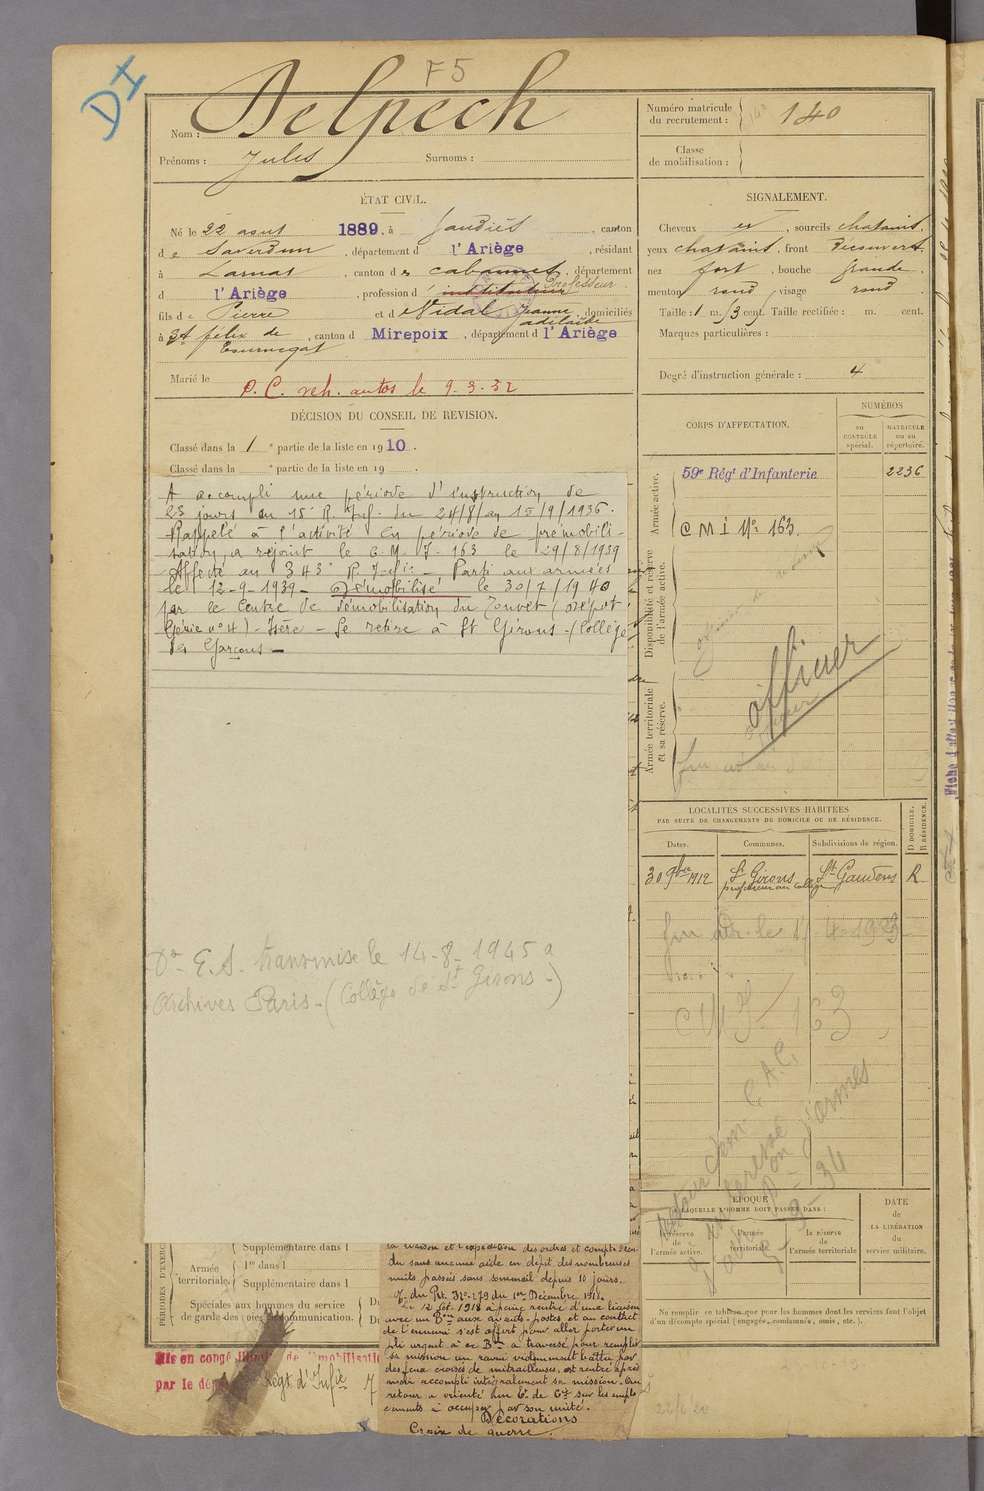 DI
F5
Nom : Delpech
Prénoms : Jules Surnoms :
Numéro matricule du recrutement : 140
Classe de mobilisation :
ÉTAT CIVIL.
Né le 22 aout 1889, à Gaudiès, canton
de Saverdun, département d l'Ariège, résidant
à Larnat, canton des cabannes, département
d l'Ariège, profession d' instituteur Professeur
fils de Pierre et de Vidal Jeanne adélaide, domiciliés
à St félix de Tournegat, canton d Mirepoix, département d l'Ariège
Marié le
P.C. veh. autos le 9.3.32
SIGNALEMENT.
Cheveux et, sourcils chatains,
yeux chatains, front Découvert,
nez fort, bouche grande,
menton rond, visage rond
Taille : 1 m. /3 cent. Taille rectifiée : m. cent.
Marques particulières :
Degré d'instruction générale : 4
DÉCISION DU CONSEIL DE REVISION.
Classé dans la 1 e partie de la liste en 1910.
Classé dans la e partie de la liste en 19 .
A accompli une période d'instruction de
23 jours au 15e R. Inf. du 24/8/ au 15/9/1936.
Rappelé à l'activité en période de prémobili-
sation, a rejoint le C.M.I. 163 le 29/8/1939
Affecté au 343e R.Infie – Parti aux armées
le 12-9-1939 – Démobilisé le 30/7/1940
par le Centre de démobilisation du Touvet (Dépôt
Génie n° 4) – Isère – Se retire à St Girons – (Collège
de Garçons –
E.S. transmise le 14-8-1945 a
Archives Paris – (Collège de St Girons –)
CORPS D'AFFECTATION.
NUMÉROS
au CONTRÔLE spécial.
MATRICULE ou au répertoire.
Armée active.
59e Régt d'Infanterie 2236
C M I No 163.
Disponibilité et réserve de l'armée active.
officier
Armée territoriale et sa réserve.
LOCALITÉS SUCCESSIVES HABITÉES
PAR SUITE DE CHANGEMENTS DE DOMICILE OU DE RÉSIDENCE.
Dates. Communes. Subdivisions de région. D DOMICILE. R RÉSIDENCE.
30 9bre 1912 St Girons professeur au collège St Gaudens R
163
ÉPOQUE
À LAQUELLE L'HOMME DOIT PASSER DANS :
la réserve de l'armée active.
l'armée territoriale.
la réserve de l'armée territoriale
DATE de LA LIBÉRATION du service militaire.
Ne remplir ce tableau que pour les hommes dont les services font l'objet
d'un décompte spécial (engagés, condamnés, omis, etc.).
PÉRIODES D'EXERC
Supplémentaire dans l
Armée territoriale. 1re dans l
Supplémentaire dans l
Spéciales aux hommes du service
de garde des voies de communication.
Mis en congé illimité de démobilisati
par le dé Régt. d'Infie
la liaison et l'expédition des ordres et comptes ren-
du sans aucune aide en dépit des nombreuses
nuits passées sans sommeil depuis 10 jours.
O. du Rgt. No 279 du 1er Décembre 1918.
Le 12 Oct. 1918 à peine rentré d'une liaison
avec un Bon aux avants-postes et au contact
de l'ennemi s'est offert pour aller porter un
pli urgent à ce Bon a traversé pour remplir
sa mission un ravin violemment battu par
des feux croisés de mitrailleuses, est rentré après
avoir accompli intégralement sa mission. Au
retour a orienté un Ct de Cie sur les empla
cements à occuper par son unité.
Décorations
Croix de guerre.
22/1/20